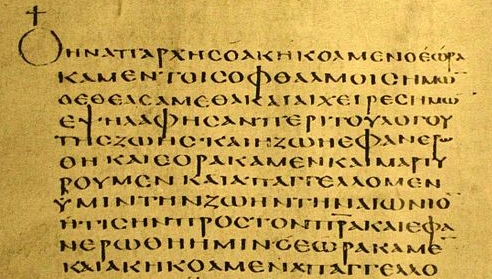 ΟΗΝΑΠΑΡΧΗϹΟΑΚΗΚΟΑΜΕΝΟΕΩΡΑ
ΚΑΜΕΝΤΟΙϹΟΦΘΑΛΜΟΙϹΗΜΩ̅
ΟΕΘΕΑϹΑΜΕΘΑΚΑΙΑΙΧΕΙΡΕϹΗΜΩ̅
ΕΨΗΛΑΦΗϹΑΝΠΕΡΙΤΟΥΛΟΓΟΥ
ΤΗϹΖΩΗϹ·ΚΑΙΗΖΩΗΕΦΑΝΕΡΩ
ΘΗ ΚΑΙΕΟΡΑΚΑΜΕΝΚΑΙΜΑΡΤΥ
ΡΟΥΜΕΝ ΚΑΙΑΠΑΓΓΕΛΛΟΜΕΝ
ΥΜΙΝΤΗΝΖΩΗΝΤΗΝΑΙΩΝΙΟ
ΗΤΙϹΗΝΠΡΟϹΤΟΝΠ̅Ρ̅Α̅ΚΑΙΕΦΑ
ΝΕΡΩΘΗΗΜΙΝΟΕΩΡΑΚΑΜΕ
ΚΑΙΑΚΗΚΟΑΜΕΝΑΠΑΓΓΕΛΛΟ